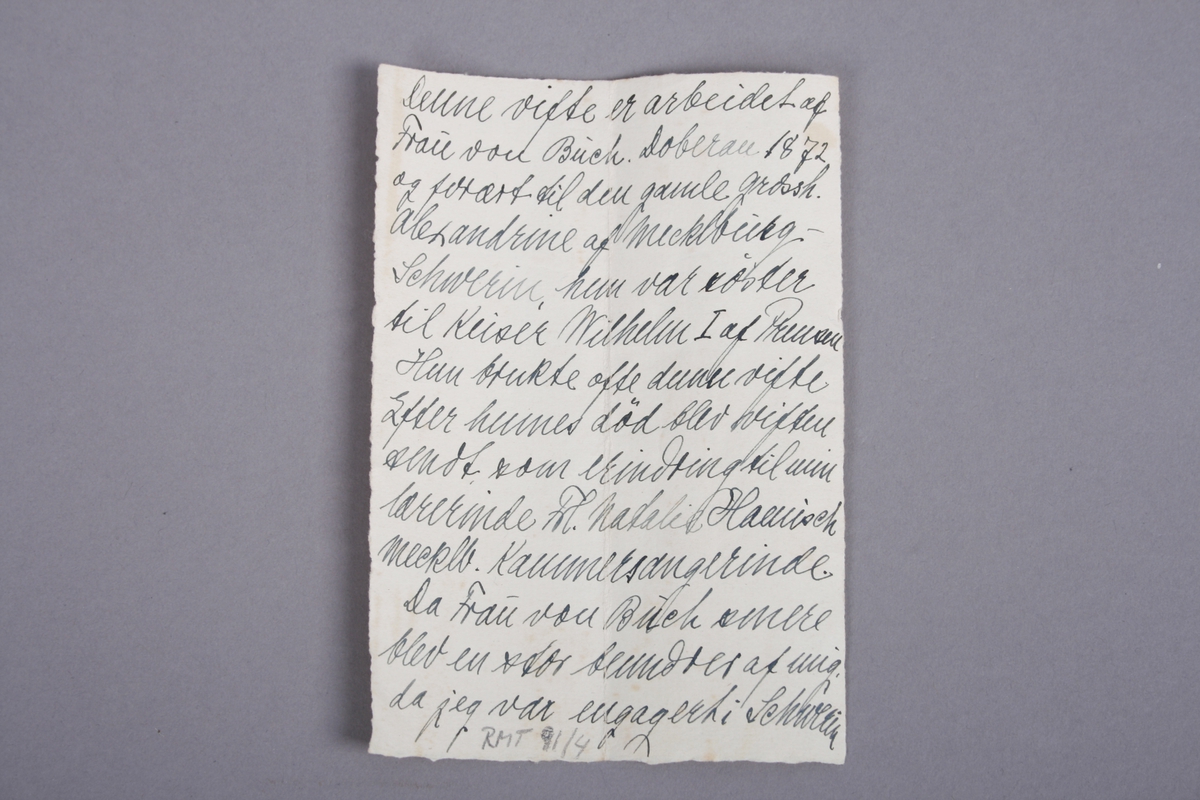 Denne vifte er arbeidet af
Fraü von Büch. Doberan 1872
og forært til den gamle Grossh.
Alexandrine af Mecklbürg-
Schwerin, hun var söster
til Keiser Wilhelm I af Preusen
Hun brukte ofte denne vifte
Efter hennes död blev viften
sendt som erindring til min
lærerinde Frl. Natalie Haenisch
Mecklb. Kammersangerinde.
Da Fraü von Büch senere
blev en stor beundrer af mig,
da jeg var engagert i Schwerin
RMT 91/4